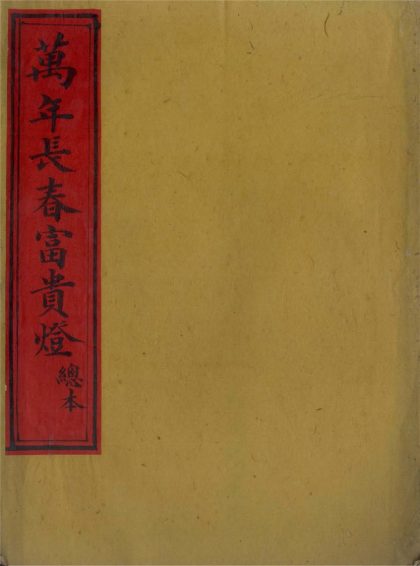 萬年長春富貴燈
總本